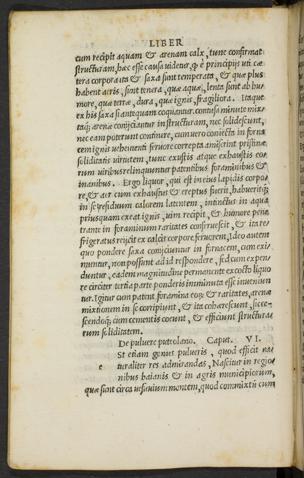 LIBER
cum recipit aquam & arenam calx, tunc confirmat
structuram, hæc esse causa uidetur, q̄ e principijs uti cæ
tera corpora ita & saxa sunt temperata, & quæ plus
habent aeris, sunt tenera, quæ aquæ, lenta sunt ab hu
more, quæ terræ, dura, quæ ignis, fragiliora. Itaque
ex his saxa si antequam coquantur, contusa minute mix-
taq; arenæ conijciantur in structuram, nec solidescunt,
nec eam poterunt continere, cum uero coniecta in forna
cem ignis uehementi feruore correpta amiserint pristinæ
soliditatis uirtutem, tunc exustis atque exhaustis eo-
rum uiribus relinquuntur patentibus foraminibus &
inanibus. Ergo liquor, qui est in eius lapidis corpo
re, & aer cum exhaustus & ereptus fuerit, habueritq;
in se residuum calorem latentem, intinctus in aqua
priusquam exeat ignis, uim recipit, & humore pene
trante in foraminum raritates conferuescit, & ita re/
frigeratus reijcit ex calcis corpore feruorem, Ideo autem
quo pondere saxa conijciuntur in fornacem, cum exi-
muntur, non possunt ad id respondere, sed cum expen-
duntur, eadem magnitudine permanente excocto liquo
re circiter tertia parte ponderis imminuta esse inuenian
tur. Igitur cum patent foramina eoꝝ & raritates, arenæ
mixtionem in se corripiunt, & ita cohærescunt, sicce-
scendoq; cum cæmentis coeunt, & efficiunt structura/
rum soliditatem.
De puluere puteolano. Caput. VI.
Est etiam genus pulueris, quod efficit na/
e turaliter res admirandas, Nascitur in regio/
nibus baianis & in agris municipiorum,
quæ sunt circa uesuuium montem, quod commixtũ cum